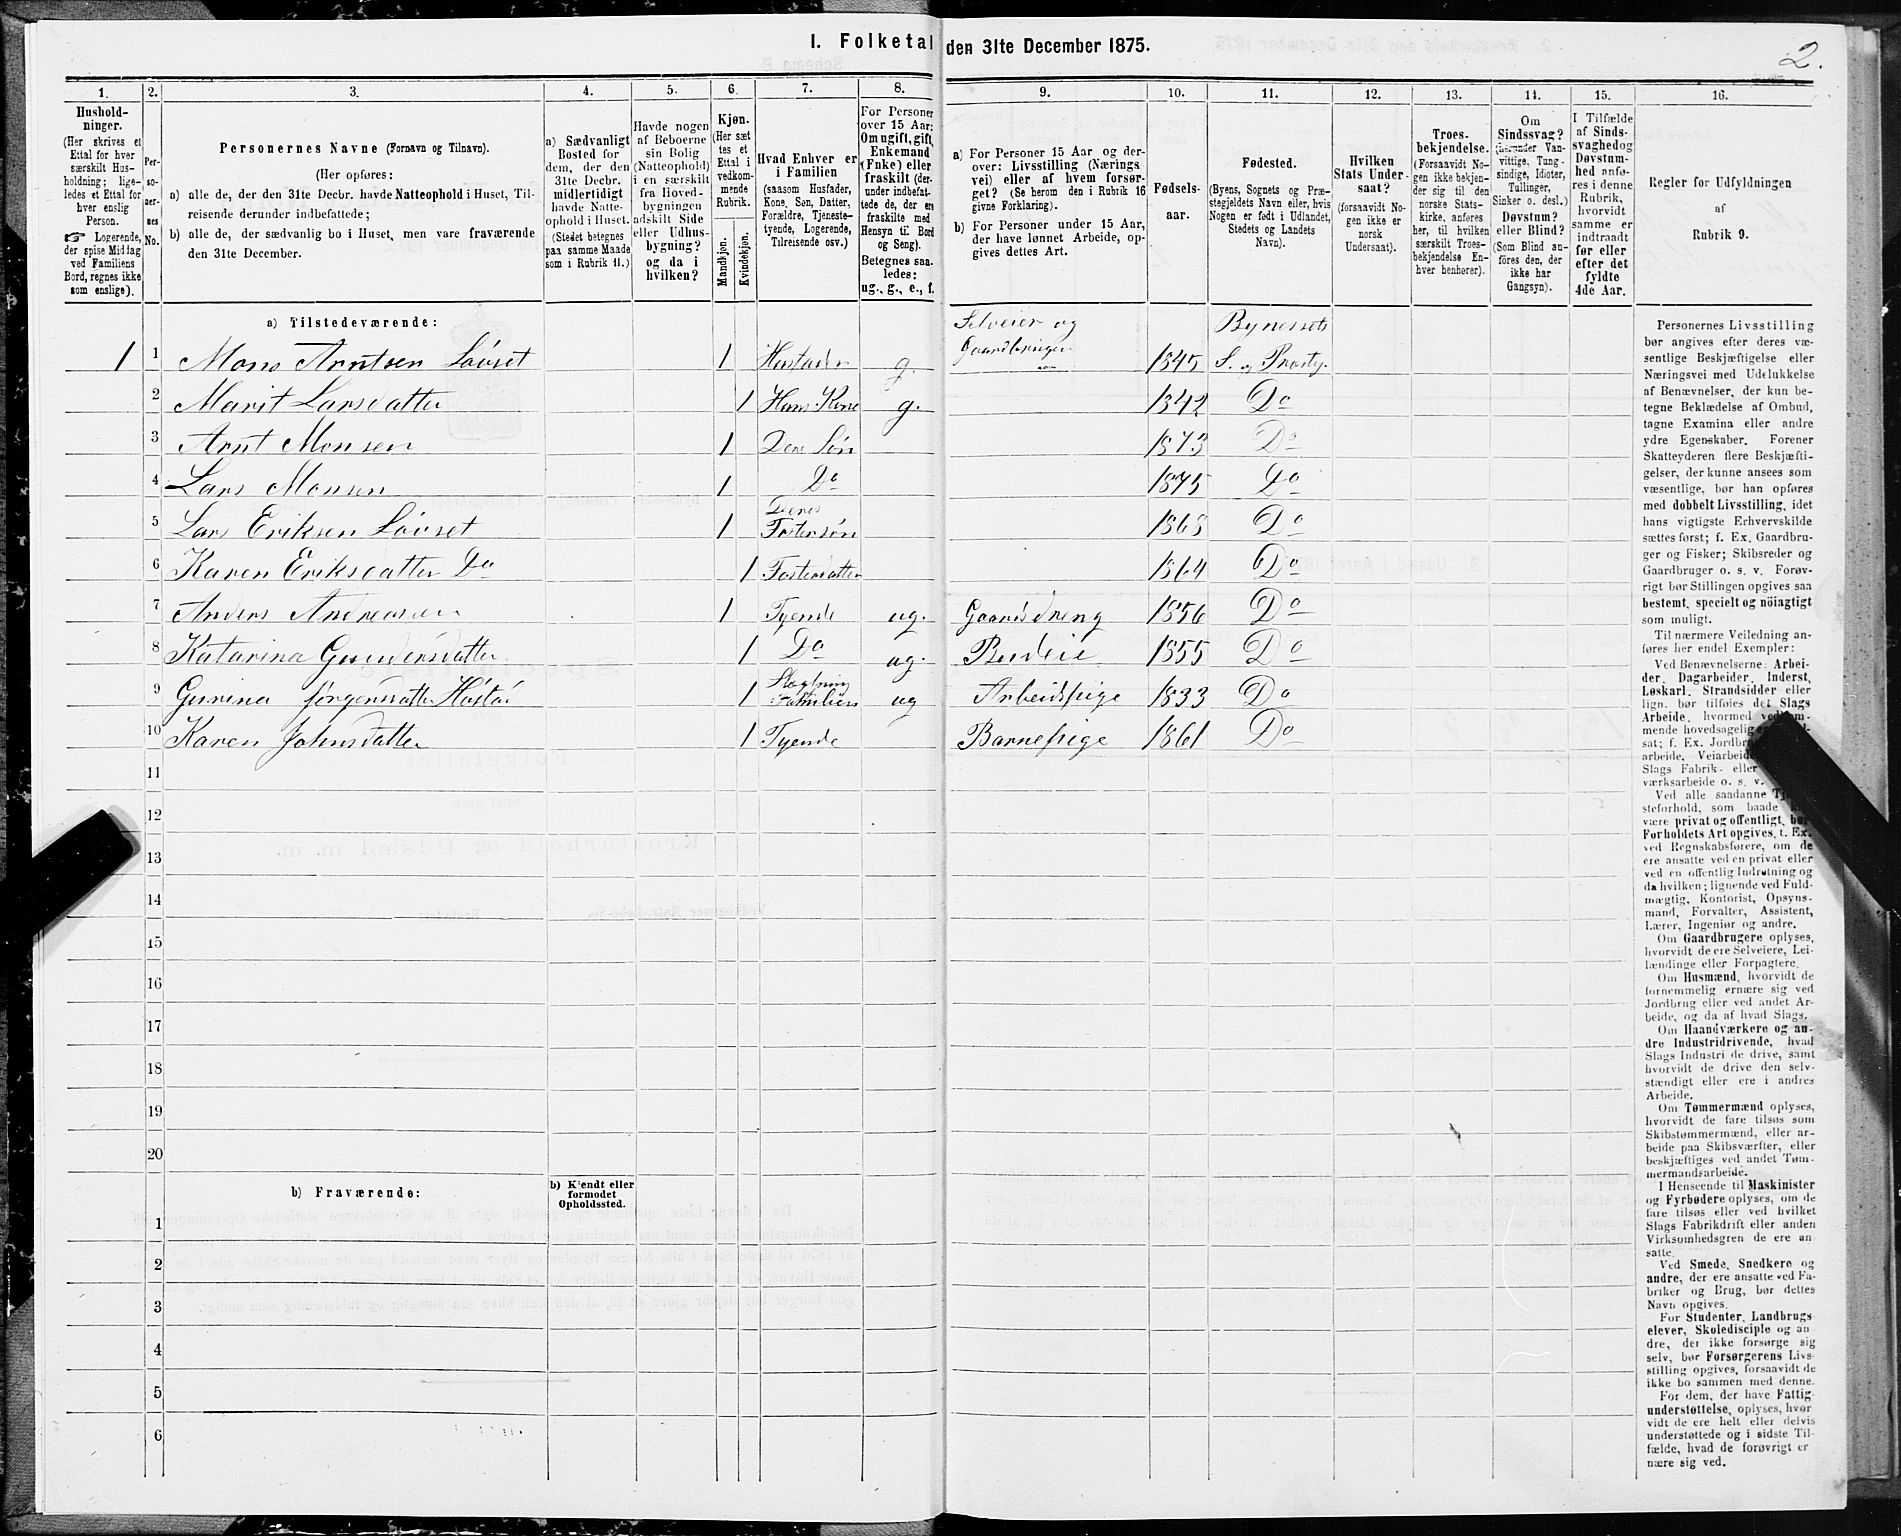 I. Folketal den 31te December 1875.
2.
1.
Hushold-
ninger.
(Her skrives et
Ettal for hver
særskilt Hus-
holdning; lige-
ledes et Ettal for
hver enslig
Person.
☞ Logerende,
der spise Middag
ved Familiens
Bord, regnes ikke
som enslige).
2.
Per-
so-
ner-
nes
No.
3.
Personernes Navne (Fornavn og Tilnavn).
(Her opføres:
a) alle de, der den 31te Decbr. havde Natteophold i Huset, Til-
reisende derunder indbefattede;
b) alle de, der sædvanlig bo i Huset, men vare fraværende
den 31te December.
4.
a) Sædvanligt
Bosted for
dem, der den
31te Decbr.
midlertidigt
havde Natte-
ophold i Huset.
(Stedet betegnes
paa samme Maade
som i Rubrik 11.)
5.
Havde nogen
af Beboerne
sin Bolig
(Natteophold)
i en særskilt
fra Hoved-
bygningen
adskilt Side
eller Udhus-
bygning?
og da i
hvilken?
6.
Kjøn.
(Her sæt
tes et
Ettal i
vedkom-
mende
Rubrik.
Mandkjøn.
Kvindekjøn.
7.
Hvad Enhver er
i Familien
(saasom Husfader,
Kone, Søn, Datter,
Forældre, Tjeneste-
tyende, Logerende,
Tilreisende osv.)
8.
For Personer
over 15 Aar:
Om ugift, gift,
Enkemand
(Enke) eller
fraskilt (der-
under indbefat-
tede de, der ere
fraskilte med
Hensyn til Bord
og Seng).
Betegnes saa-
ledes:
ug., g., e., f.
9.
a) For Personer 15 Aar og der-
over: Livsstilling (Nærings
vei) eller af hvem forsør-
get? (Se herom den i Rubrik 16
givne Forklaring).
b) For Personer under 15 Aar,
der have lønnet Arbeide, op-
gives dettes Art.
10.
Fødsels-
aar.
11.
Fødested.
(Byens, Sognets og Præ-
stegjeldets Navn eller, hvis
Nogen er født i Udlandet,
Stedets og Landets
Navn).
12.
Hvilken
Stats Under-
saat?
(forsaavidt No-
gen ikke er
norsk
Undersaat).
13.
Troes-
bekjendelse.
(Forsaavidt No-
gen ikke bekjen-
der sig til den
norske Stats-
kirke, anføres
her, til hvilken
særskilt Troes-
bekjendelse En-
hver henhører).
14.
Om
Sindssvag?
(herunder Van-
vittige, Tung-
sindige, Idioter,
Tullinger,
Sinker o. desl.)
Døvstum?
eller Blind?
(Som Blind an-
føres den, der
ikke har
Gangsyn).
15.
I Tilfælde
af Sinds-
svaghed og
Døvstum-
hed anfø-
res i denne
Rubrik,
hvorvidt
samme er
indtraadt
før eller
efter det
fyldte
4de Aar.
16.
Regler for Udfyldningen
af
Rubrik 9.
a) Tilstedeværende:
1 1 Mons Arntsen Løvset 1 Husfader g. Selveier og Gaardbruger 1845 Bynessets S. og Præstg.
2 Marit Larsdatter 1 Hans Kone g. 1842 Do
3 Arnt Monsen 1 Dere Søn 1873 Do
4 Lars Monsen 1 Do 1875 Do
5 Lars Eriksen Løvset 1 Deres Fostersøn 1868 Do
6 Karen Eriksdatter Do 1 Fosterdatter 1864 Do
7 Anders Andreassen 1 Tyende ug. Gaardsdreng 1856 Do
8 Katarina Gundersdatter 1 Do ug. Budeie 1855 Do
9 Gurina Jørgensdatter 1 Familien ug Arbeidspige 1833 Do
10 Karen Johnsdatter 1 Tyende Barnepige 1861 Do
11
12
13
14
15
16
17
18
19
20
b) Fraværende:
b) Kjendt eller
formodet
Opholdssted.
1
2
3
4
5
6
Personernes Livsstilling
bør angives efter deres væ-
sentlige Beskjæftigelse eller
Næringsvei med Udelukkelse
af Benævnelser, der kun be-
tegne Beklædelse af Ombud,
tagne Examina eller andre
ydre Egenskaber. Forener
Skatteyderen flere Beskjæfti-
gelser, der kunne ansees som
væsentlige, bør han opføres
med dobbelt Livsstilling, idet
hans vigtigste Erhvervskilde
sættes først; f. Ex. Gaardbru-
ger og Fisker; Skibsreder og
Gaardbruger o. s. v. Forøv-
rigt bør Stillingen opgives saa
bestemt, specielt og nöiagtigt
som muligt.
Til nærmere Veiledning an-
føres her endel Exempler:
Ved Benævnelserne: Arbei-
der, Dagarbeider, Inderst,
Løskarl, Strandsidder eller
lign. bør tilføies det Slags
Arbeide, hvormed
mende hovedsagelig
sat; f. Ex.
arbeide, Veiarbeide
Slags Fabrik- eller
værksarbeide o. s. v.
Ved alle saadanne
steforhold, som baade
være privat og offentligt, bør
Forholdets Art opgives, t. Ex.
ved Regnskabsførere, om de
ere ansatte ved en privat eller
ved en offentlig Indretning og
da hvilken; lignende ved Fuld-
mægtig, Kontorist, Opsyns-
mand, Forvalter, Assistent,
Lærer, Ingeniør og andre.
Om Gaardbrugere oplyses,
hvorvidt de ere Selveiere, Lei-
lændinge eller Forpagtere.
Om Husmænd, hvorvidt de
fornemmelig ernære sig ved
Jordbrug eller ved andet Ar-
beide, og da af hvad Slags.
Om Haandværkere og an-
dre Industridrivende, hvad
Slags Industri de drive, samt
hvorvidt de drive den selv-
stændigt eller ere i andres
Arbeide.
Om Tømmermænd oplyses,
hvorvidt de fare tilsøs som
Skibstømmermænd, eller ar-
beide paa Skibsværfter, eller
beskjæftiges ved andet Tøm-
mermandsarbeide.
I Henseende til Maskinister
og Fyrbødere oplyses, om de
fare tilsøs eller ved hvilket
Slags Fabrikdrift eller anden
Virksomhedsgren de ere an-
satte.
Ved Smede, Snedkere og
andre, der ere ansatte ved Fa-
briker og Brug, bør dettes
Navn opgives.
For Studenter, Landbrugs-
elever, Skoledisciple og an-
dre, der ikke forsørge sig
selv, bør Forsørgerens Livs-
stilling opgives, forsaavidt de
ikke bo sammen med denne.
For dem, der have Fattig-
understøttelse, oplyses, hvor
vidt de ere helt eller delvis
understøttede og i sidste Til-
fælde, hvad de forøvrigt er
nære sig ved.